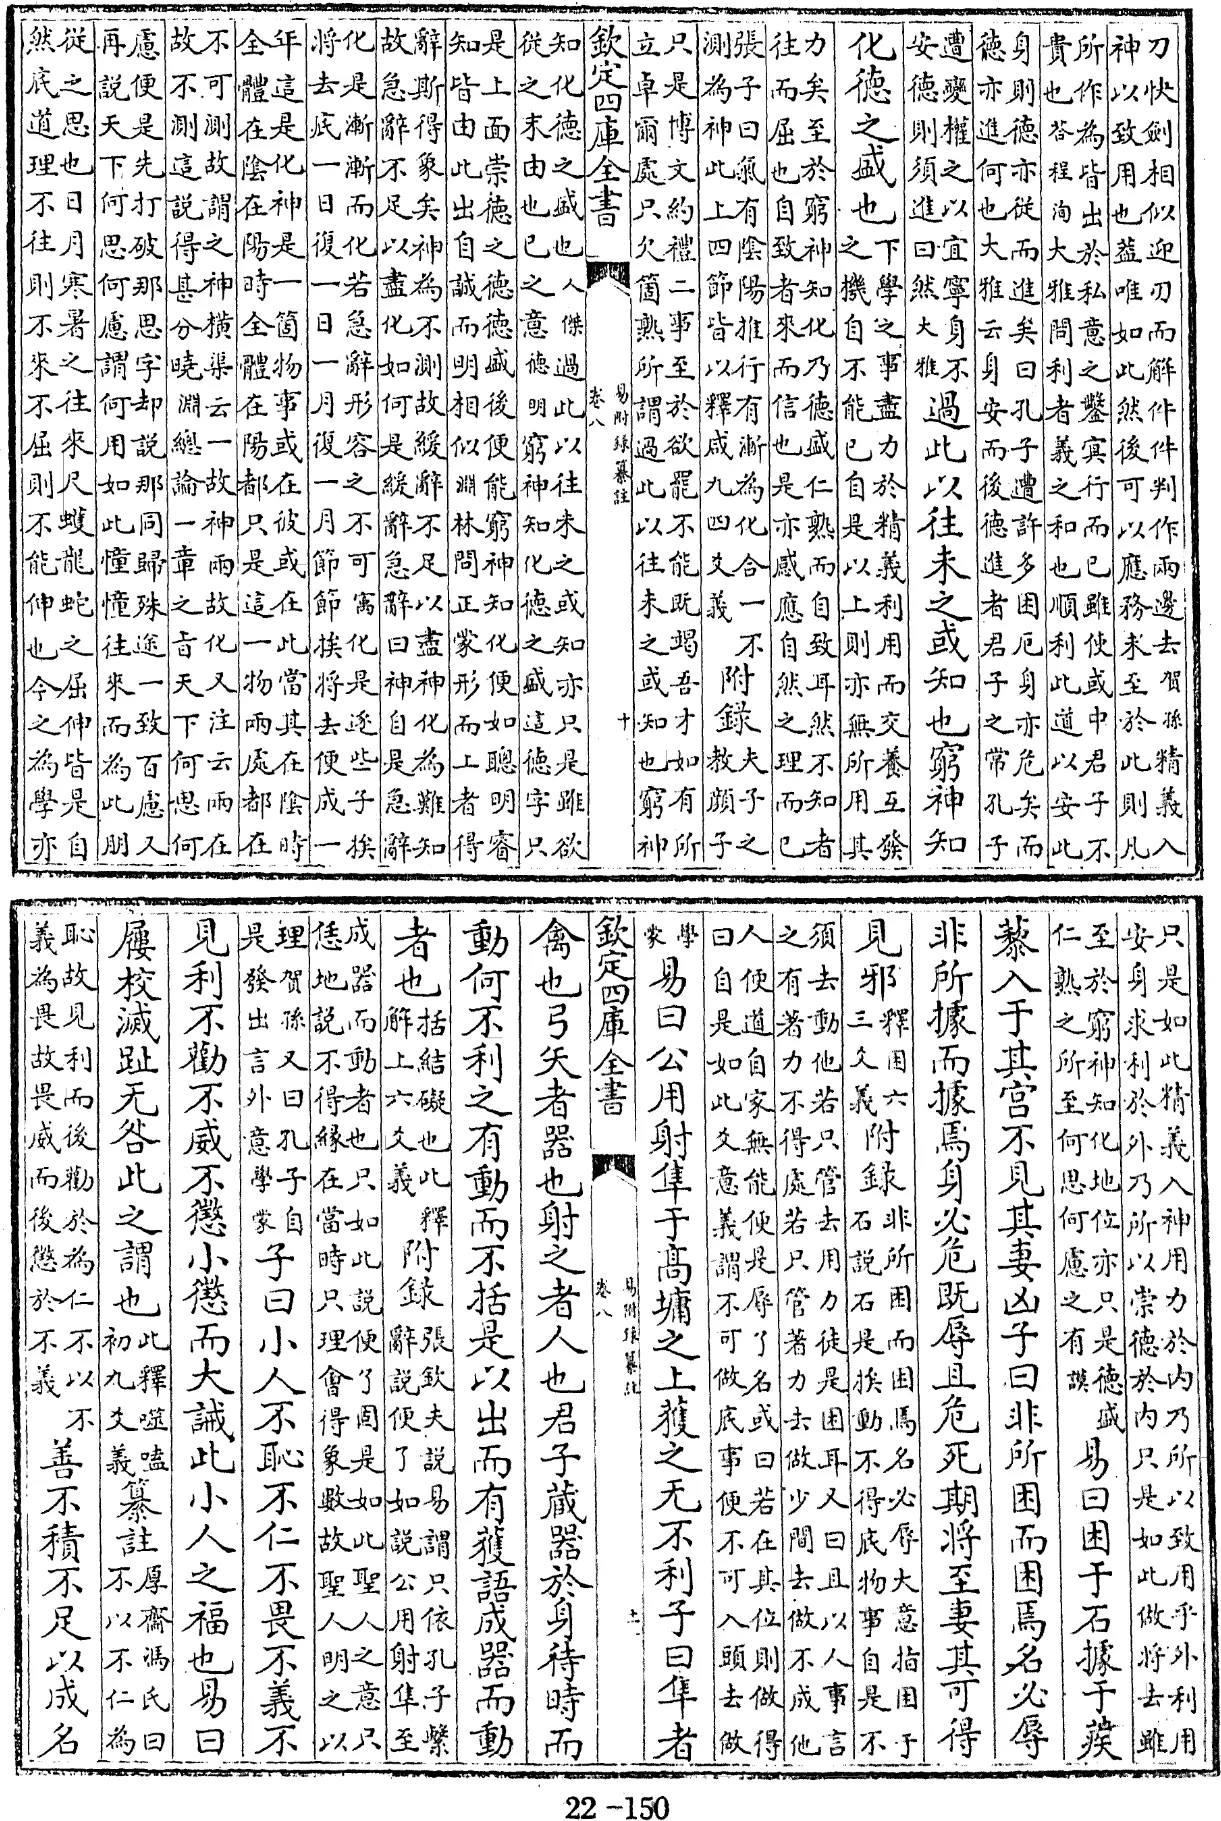 刀快劍相似迎刃而解件件判作兩邊去賀孫精義入
神以致用也蓋唯如此然後可以應務未至於此則凡
所作為皆出於私意之鑿冥行而已雖使或中君子不
貴也答程洵大雅問利者義之和也順利此道以安此
身則德亦從而進矣曰孔子遭許多困厄身亦危矣而
德亦進何也大雅云身安而後德進者君子之常孔子
遭變權之以宜寧身不
安德則須進曰然大雅
過此以往未之或知也窮神知
化德之盛也
下學之事盡力於精義利用而交養互發
之機自不能已自是以上則亦無所用其
力矣至於窮神知化乃德盛仁熟而自致耳然不知者
往而屈也自致者來而信也是亦感應自然之理而已
張子曰氣有陰陽推行有漸為化合一不
測為神此上四節皆以釋咸九四爻義
附錄
夫子之
教顔子
只是博文約禮二事至於欲罷不能既竭吾才如有所
立卓爾處只欠箇熟所謂過此以往未之或知也窮神
欽定四庫全書
易附録纂註
卷八
十
知化德之盛也人傑過此以往未之或知亦只是雖欲
從之末由也已之意德明窮神知化德之盛這德字只
是上面崇德之德德盛後便能窮神知化便如聰明睿
知皆由此出自誠而明相似淵林問正蒙形而上者得
辭斯得象矣神為不測故緩辭不足以盡神化為難知
故急辭不足以盡化如何是緩辭急辭曰神自是急辭
化是漸漸而化若急辭形容之不可寓化是逐些子挨
將去底一日復一日一月復一月節節挨將去便成一
年這是化神是一箇物事或在彼或在此當其在陰時
全體在陰在陽時全體在陽都只是這一物兩處都在
不可測故謂之神橫渠云一故神兩故化又注云兩在
故不測這説得甚分曉淵總論一章之旨天下何思何
慮便是先打破那思字却説那同歸殊途一致百慮又
再説天下何思何慮謂何用如此憧憧往來而為此朋
從之思也日月寒暑之往來尺蠖龍蛇之屈伸皆是自
然底道理不往則不來不屈則不能伸也今之為學亦
只是如此精義入神用力於内乃所以致用乎外利用
安身求利於外乃所以崇德於内只是如此做將去雖
至於窮神知化地位亦只是德盛
仁熟之所至何思何慮之有謨
易曰困于石據于蒺
藜入于其宫不見其妻凶子曰非所困而困焉名必辱
非所據而據焉身必危既辱且危死期將至妻其可得
見邪
釋困六
三爻義
附録
非所困而困焉名必辱大意指困于
石説石是挨動不得底物事自是不
須去動他若只管去用力徒是困耳又曰且以人事言
之有著力不得處若只管著力去做少間去做不成他
人便道自家無能便是辱了名或曰若在其位則做得
曰自是如此爻意義謂不可做底事便不可入頭去做
學
蒙
易曰公用射隼于高墉之上獲之无不利子曰隼者
欽定四庫全書
易附録纂註
卷八
十一
禽也弓矢者器也射之者人也君子藏器於身待時而
動何不利之有動而不括是以出而有獲語成器而動
者也
括結礙也此釋
解上六爻義
附録
張欽夫説易謂只依孔子繫
辭説便了如説公用射隼至
成器而動者也只如此説便了固是如此聖人之意只
恁地説不得緣在當時只理會得象數故聖人明之以
理賀孫又曰孔子自
是發出言外意學蒙
子曰小人不恥不仁不畏不義不
見利不勸不威不懲小懲而大誡此小人之福也易曰
屨校滅趾无咎此之謂也
此釋噬嗑
初九爻義
纂註
厚齋馮氏曰
不以不仁為
恥故見利而後勸於為仁不以不
義為畏故畏威而後懲於不義
善不積不足以成名
22-150